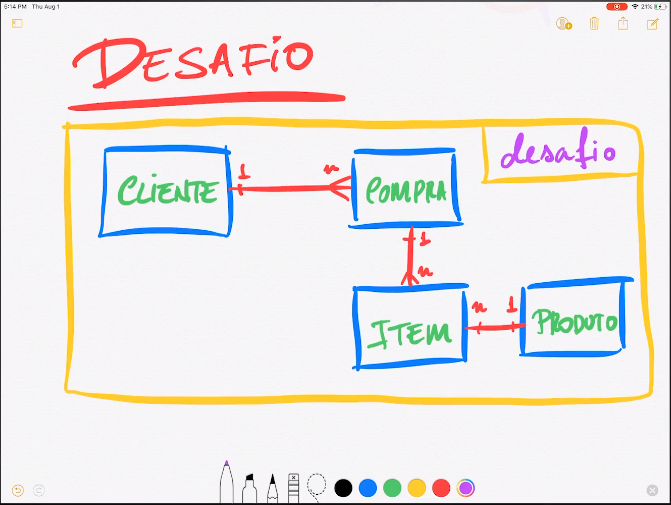 5:14 PM Thu Aug 1
21%
DESAFIO
desafio
CLIENTE
1
n
COMPRA
1
n
ITEM
n
1
PRODUTO